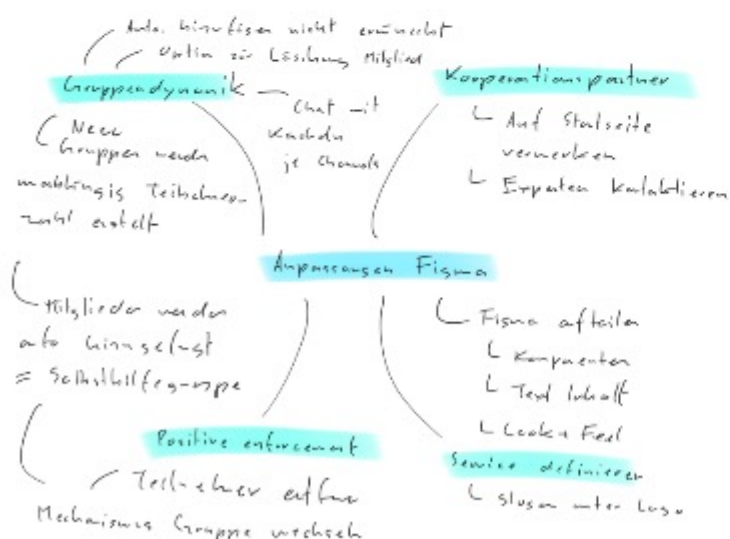 Auto. hinzufügen nicht erwünscht
Option zur Löschung Mitglied
Gruppendynamik
Chat mit
Kacheln
je Channels
Neue
Gruppen werden
unabhängig Teilnehmer-
zahl erstellt
Mitglieder werden
auto hinzugefügt
= Selbsthilfegruppe
Kooperationspartner
Auf Startseite
vermerken
Experten kontaktieren
Anpassungen Figma
Figma aufteilen
Komponenten
Text Inhalt
Look n Feel
Positive enforcement
Teilnehmer
Mechanismus Gruppe wechseln
Service definieren
Slogan unter Logo